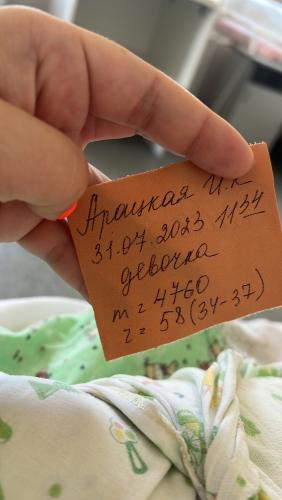 Арацкая И.К
31.07.2023 11 34
девочка
m = 4760
r = 58 (34-37)